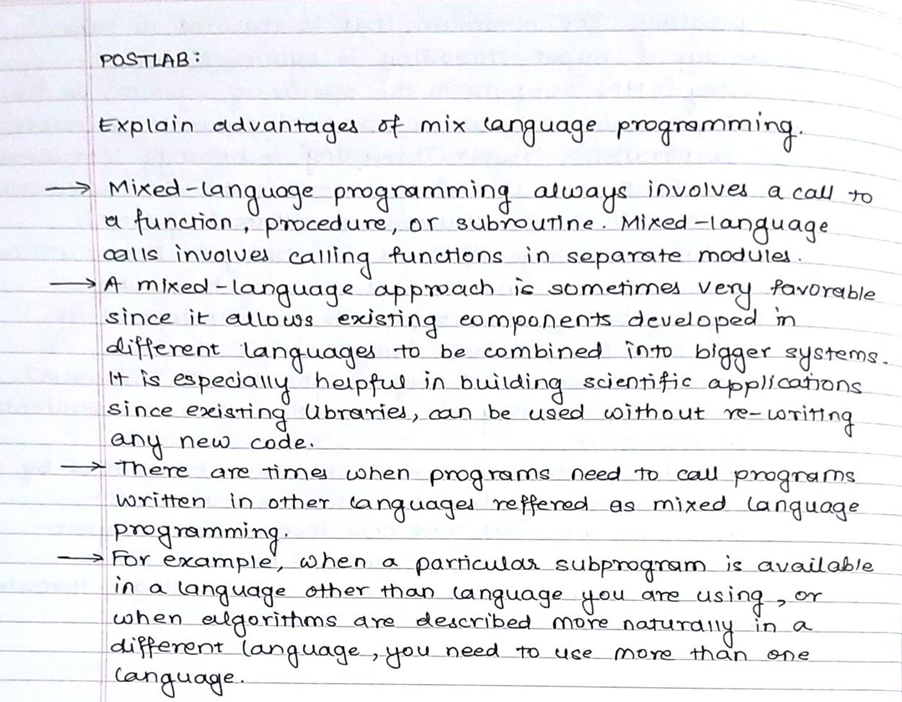 POSTLAB:
Explain advantages of mix language programming.
→ Mixed-language programming always involves a call to
a function, procedure, or subroutine. Mixed-language
calls involves calling functions in separate modules.
→ A mixed-language approach is sometimes very favorable
since it allows existing components developed in
different languages to be combined into bigger systems.
It is especially helpful in building scientific applications
since existing libraries, can be used without re-writing
any new code.
→ There are times when programs need to call programs
written in other languages reffered as mixed language
programming.
→ For example, when a particular subprogram is available
in a language other than language you are using, or
when algorithms are described more naturally in a
different language, you need to use more than one
language.